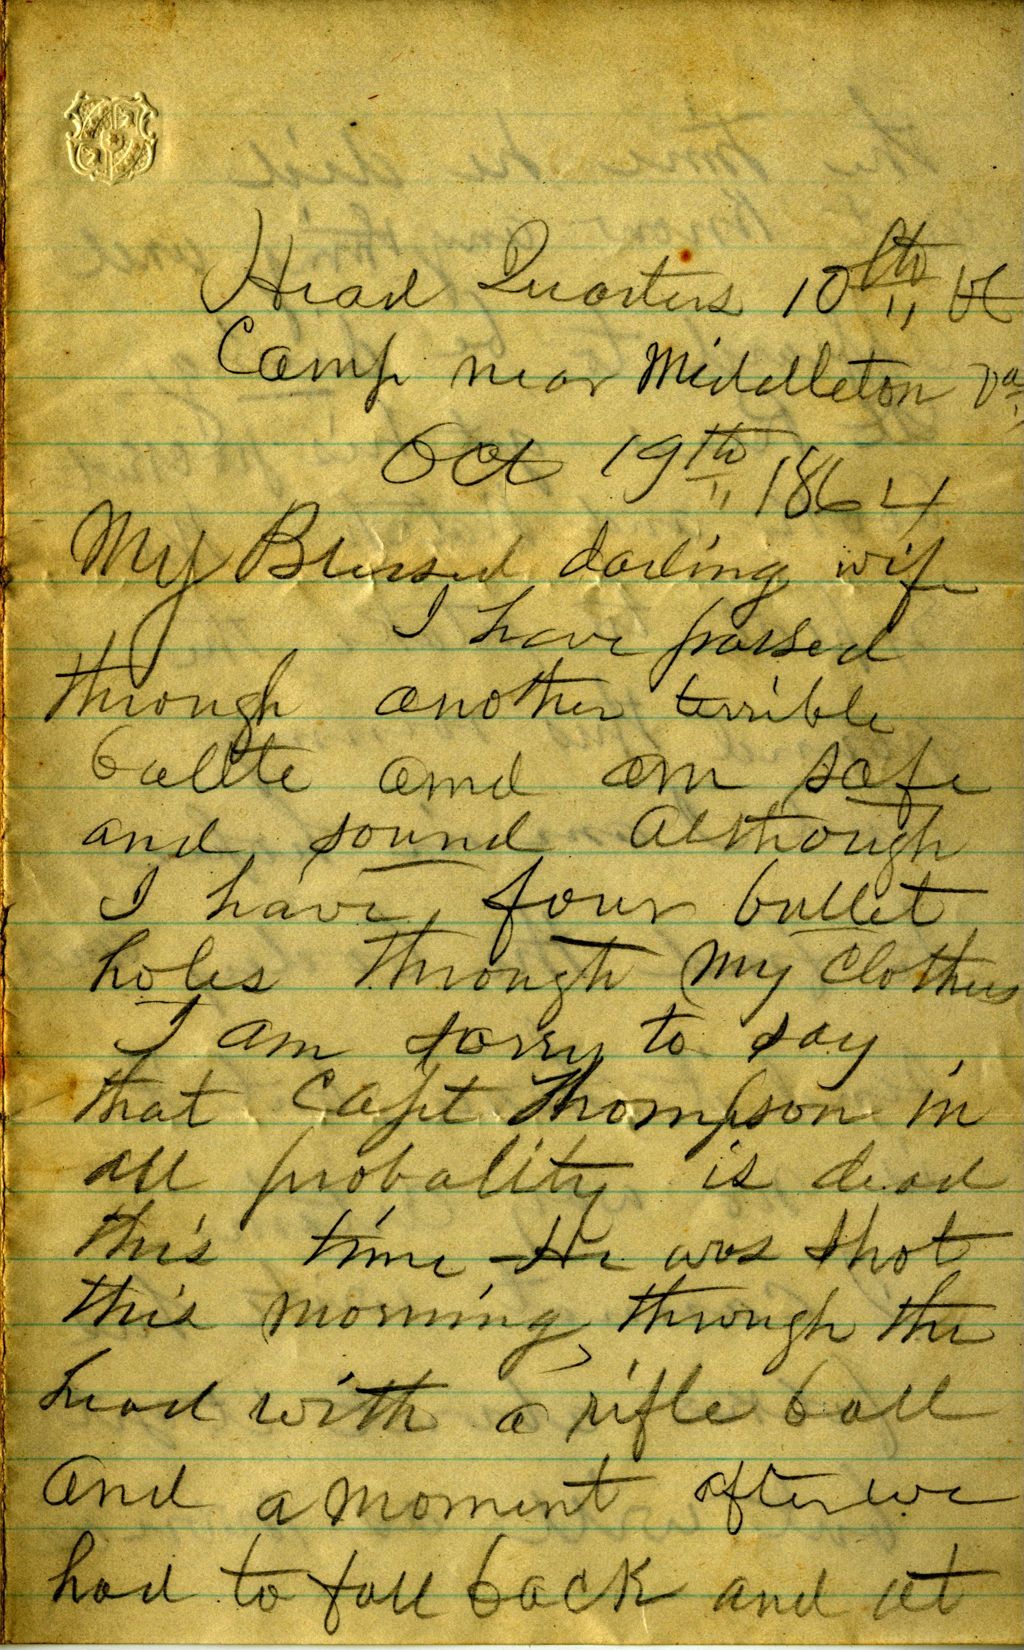 Head Quarters 10th Vt
Camp near Middleton Va
Oct 19th 1864
My Blessed darling wife
I have passed
through another terrible
battle and am safe
and sound Although
I have four bullet
holes through my clothes
I am sorry to say
that Capt Thompson in
all probality is dead
this time He was shot
this morning through the
head with a rifle ball
and a moment after we
had to fall back and at